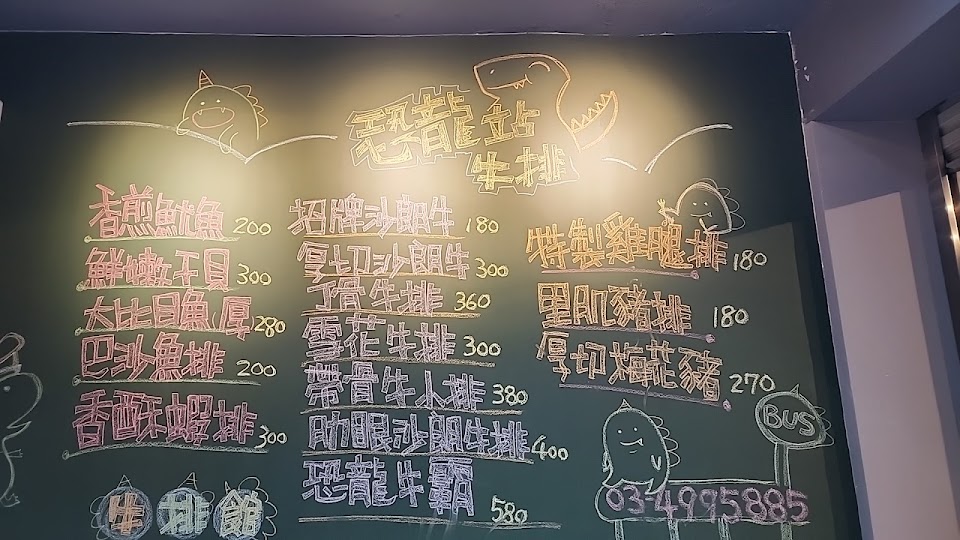 恐龍站
牛排
香煎魷魚 200
鮮嫩干貝 300
大比目魚 厚 280
巴沙魚排 200
香酥蝦排 300
牛排館
招牌沙朗牛 180
厚切沙朗牛 300
丁骨牛排 360
雪花牛排 300
帶骨牛小排 380
肋眼沙朗牛排 400
恐龍牛霸 580
特製雞腿排 180
里肌豬排 180
厚切梅花豬 270
BUS
03-4995885